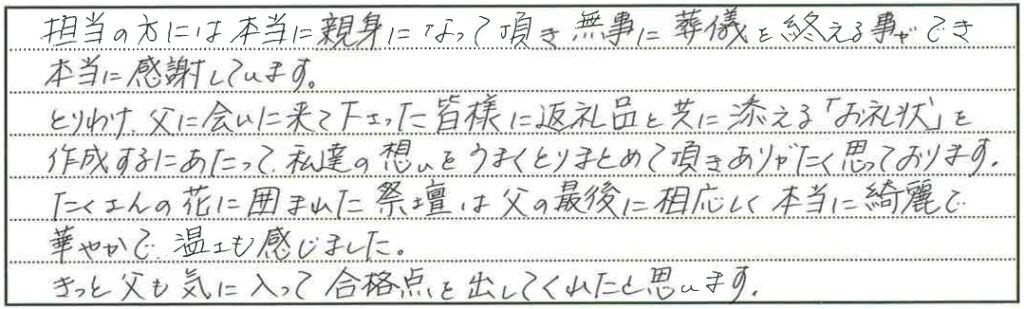 担当の方には本当に親身になって頂き無事に葬儀を終える事ができ
本当に感謝しています。
とりわけ、父に会いに来て下さった皆様に返礼品と共に添える「お礼状」を
作成するにあたって、私達の想いをうまくとりまとめて頂きありがたく思っております。
たくさんの花に囲まれた祭壇は父の最後に相応しく本当に綺麗で
華やかで、温さも感じました。
きっと父も気に入って合格点を出してくれたと思います。